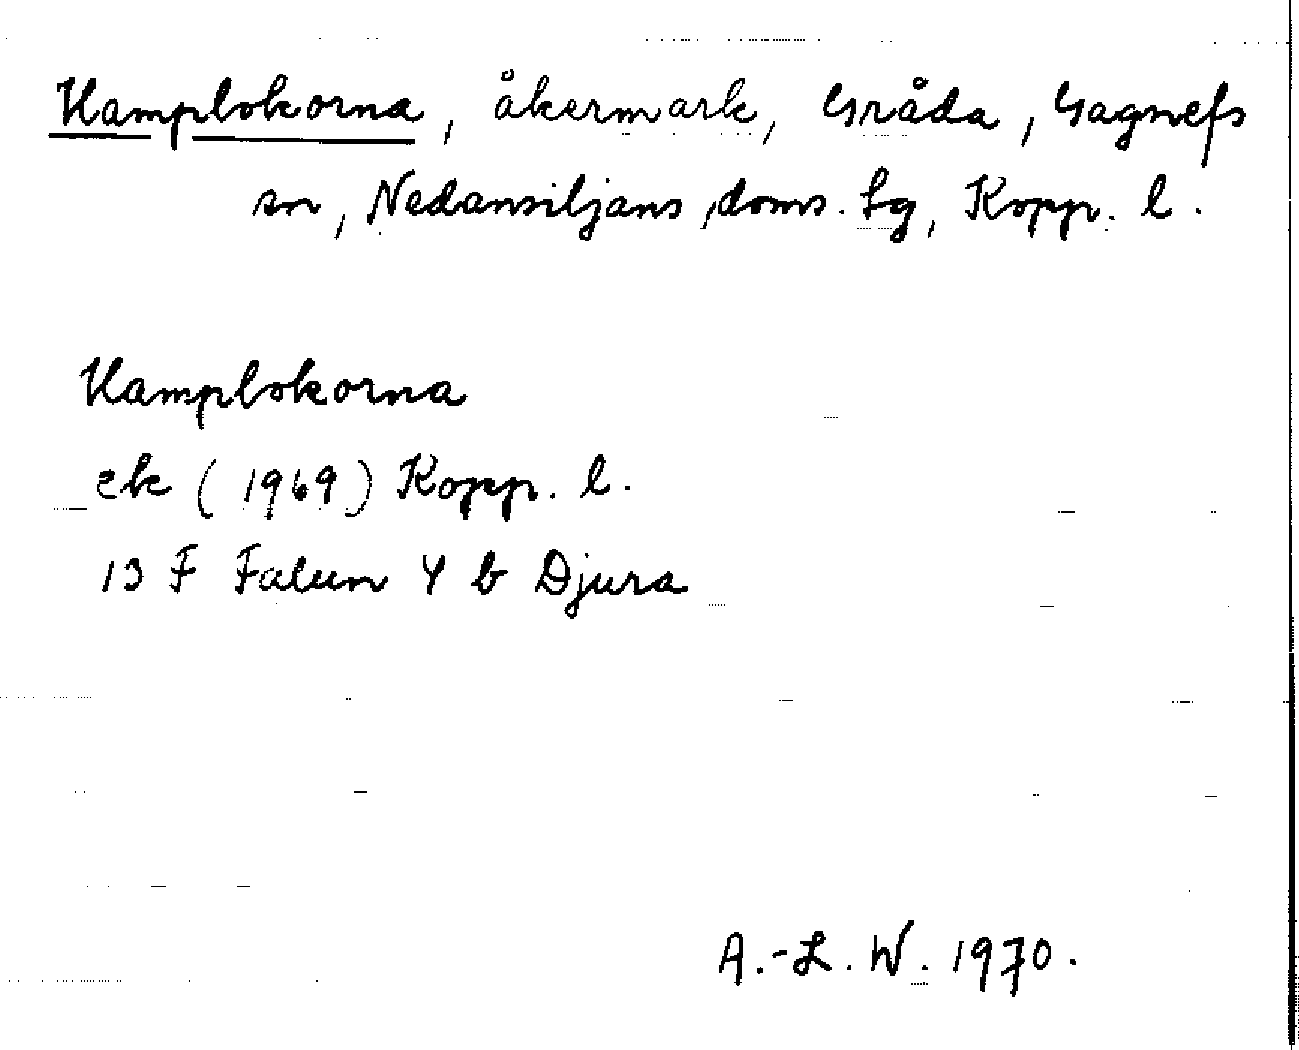 Hamplokorna, åkermark, Gråda, Gagnefs
sn, Nedansiljans doms. Lg, Kopp. l.
Hamplokorna
ek (1969) Kopp. l.
13 F Falun 4 b Djura
A.-L. W. 1970.